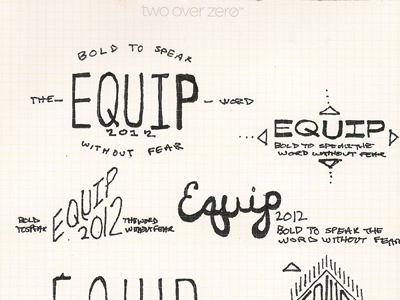 two over zerø™
BOLD TO SPEAK
THE– EQUIP – WORD
2012
WITHOUT FEAR
EQUIP
BOLD TO SPEAK THE
WORD WITHOUT FEAR
EQUIP
2012
BOLD
TO SPEAK
THE WORD
WITHOUT FEAR
Equip 2012
BOLD TO SPEAK THE
WORD WITHOUT FEAR
EQUIP